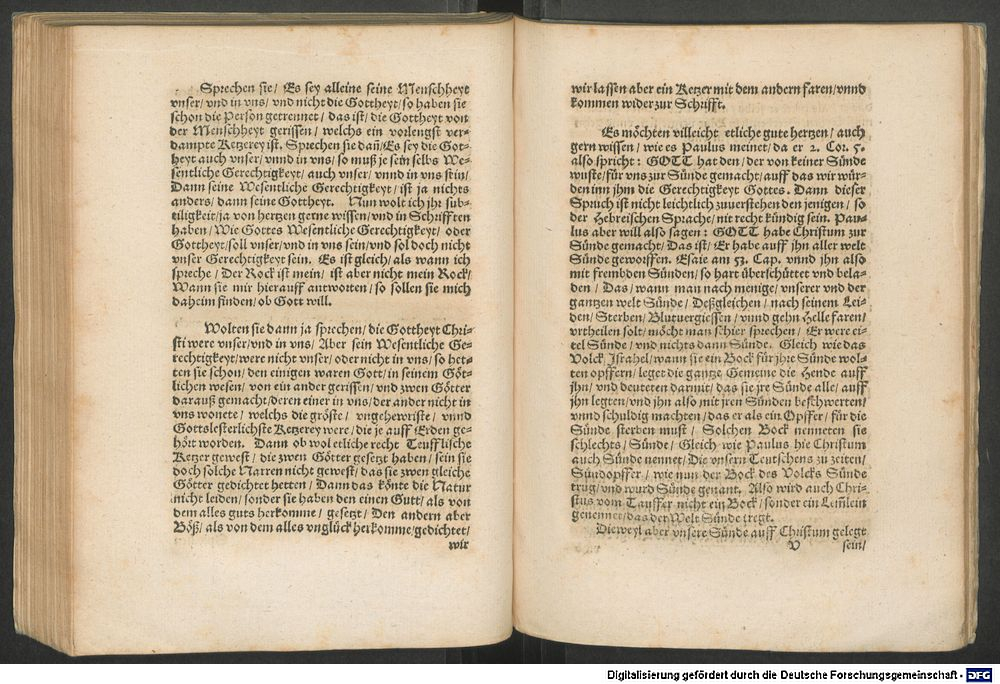 Sprechen sie/ Es sey alleine seine Menschheyt
vnser/ vnd in vns/ vnd nicht die Gottheyt/ so haben sie
schon die Person getrennet/ das ist/ die Gottheyt von
der Menschheyt gerissen/ welchs ein vorlengst ver-
dampte Ketzerey ist. Sprechen sie dañ/ Es sey die Got-
heyt auch vnser/ vnnd in vns/ so muß je sein selbs We-
sentliche Gerechtigkeyt/ auch vnser/ vnnd in vns sein/
Dann seine Wesentliche Gerechtigkeyt/ ist ja nichts
anders/ dann seine Gottheyt. Nun wolt ich jhr sub-
tiligkeit/ ja von hertzen gerne wissen/ vnd in Schrifften
haben/ Wie Gottes Wesentliche Gerechtigkeyt/ oder
Gottheyt/ soll vnser/ vnd in vns sein/ vnd sol doch nicht
vnser Gerechtigkeyt sein. Es ist gleich/ als wann ich
spreche/ Der Rock ist mein/ ist aber nicht mein Rock/
Wann sie mir hierauff antwotten/ so sollen sie mich
daheim finden/ ob Gott will.
Wolten sie dann ja sprechen/ die Gottheyt Chri-
sti were vnser/ vnd in vns/ Aber sein Wesentliche Ge-
rechtigkeyt/ were nicht vnser/ oder nicht in vns/ so het-
ten sie schon/ den einigen waren Gott/ in seinem Göt-
lichen wesen/ von ein ander gerissen/ vnd zwen Götter
darauß gemacht/ deren einer in vns/ der ander nicht in
vns wonete/ welchs die gröste/ vngehewriste/ vnnd
Gottslesterlichste Ketzerey were/ die je auff Erden ge-
hört worden. Dann ob wol etliche recht Teufflische
Ketzer gewest/ die zwen Götter gesetzt haben/ sein sie
doch solche Narren nicht gewest/ das sie zwen gleiche
Götter gedichtet hetten/ Dann das könte die Natur
nicht leiden/ sonder sie haben den einen Gutt/ als von
dem alles guts herkomme/ gesetzt/ Den andern aber
Böß/ als von dem alles vnglück herkomme/ gedichtet/
wir
wir lassen aber ein Ketzer mit dem andern faren/ vnnd
kommen wider zur Schrifft.
Es möchten villeicht etliche gute hertzen/ auch
gern wissen/ wie es Paulus meinet/ da er 2. Cor. 5.
also spricht: GOTT hat den/ der von keiner Sünde
wuste/ für vns zur Sünde gemacht/ auff das wir wür-
den inn jhm die Gerechtigkeyt Gottes. Dann dieser
Spruch ist nicht leichtlich zuuerstehen den jenigen/ so
der Hebreischen Sprache/ nit recht kündig sein. Pau-
lus aber will also sagen: GOTT habe Christum zur
Sünde gemacht/ Das ist/ Er habe auff jhn aller welt
Sünde geworffen. Esaie am 53. Cap. vnnd jhn also
mit frembden Sünden/ so hart überschüttet vnd bela-
den/ Das/ wann man nach menige/ vnserer vnd der
gantzen welt Sünde/ Deßgleichen/ nach seinem Lei-
den/ Sterben/ Blutuergiessen/ vnnd gehn Helle faren/
vrtheilen solt/ möcht man schier sprechen/ Er were ei-
tel Sünde/ vnd nichts dann Sünde. Gleich wie das
Volck Israhel/ wann sie ein Bock für jhre Sünde wol-
ten opffern/ leget die gantze Gemeine die Hende auff
jhn/ vnd deuteten darmit/ das sie jre Sünde alle/ auff
jhn legten/ vnd jhn also mit jren Sünden beschwerten/
vnnd schuldig machten/ das er als ein Opffer/ für die
Sünde sterben must/ Solchen Bock nenneten sie
schlechts/ Sünde/ Gleich wie Paulus hie Christum
auch Sünde nennet/ Die vnsern Teutschens zu zeiten/
Sündopffer/ wie nun der Bock des Volcks Sünde
trug/ vnd wurd Sünde genant. Also wird auch Chri-
stus vom Tauffer nicht ein Bock/ sonder ein Lem̃lein
genennet/ das der Welt Sünde tregt.
Dieweyl aber vnsere Sünde auff Christum gelegt
V sein/
Digitalisierung gefördert durch die Deutsche Forschungsgemeinschaft - DFG